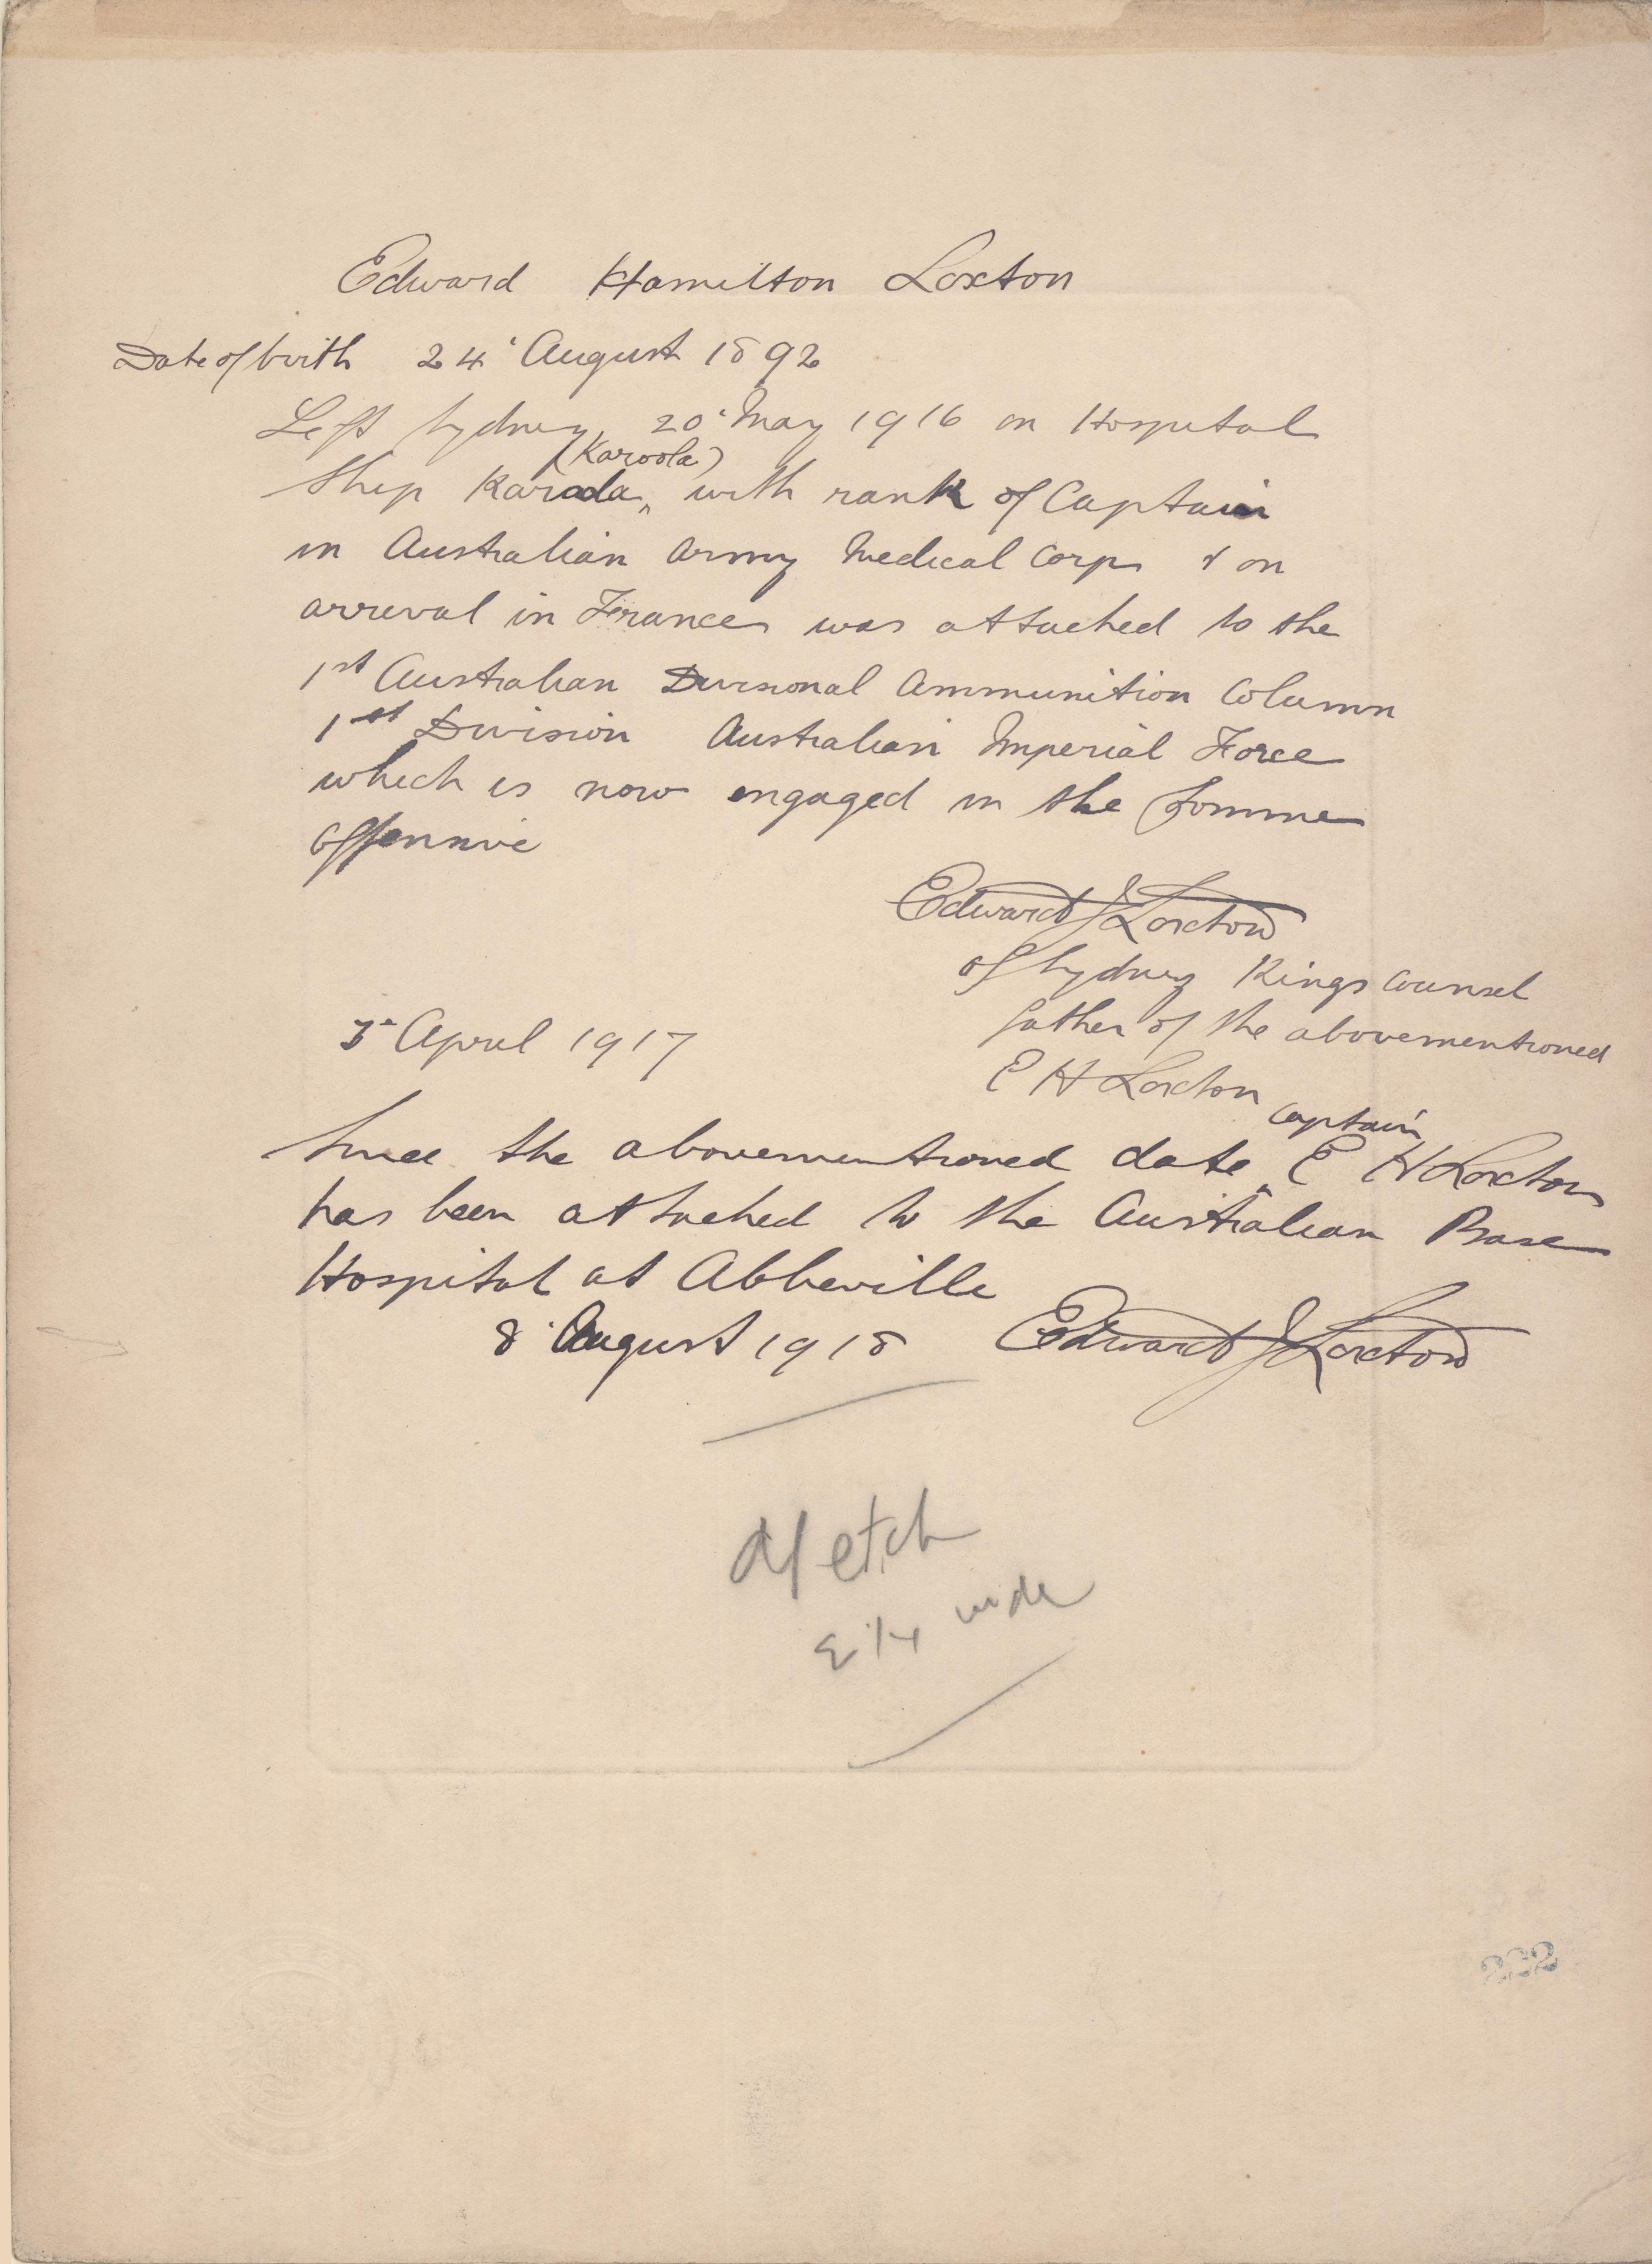 Edward Hamilton Loxton
Date of birth 24 August 1892
Left Sydney, 20 May 1916 on Hospital
(Karoola)
Ship Karoola, with rank of Captain
in Australian Army Medical Corps & on
arrival in France was attached to the
1st Australian Divisional Ammunition Column
1st Division Australian Imperial Force
which is now engaged in the Somme
offensive
Edward J Loxton
of Sydney Kings Counsel
father of the abovementioned
E H Loxton
3 April 1917
Captain
Since the abovementioned date E H Loxton
has been attached to the Australian Base
Hospital at Abbeville
8 August 1918 Edward J Loxton
etch
2 1/4 wide
222